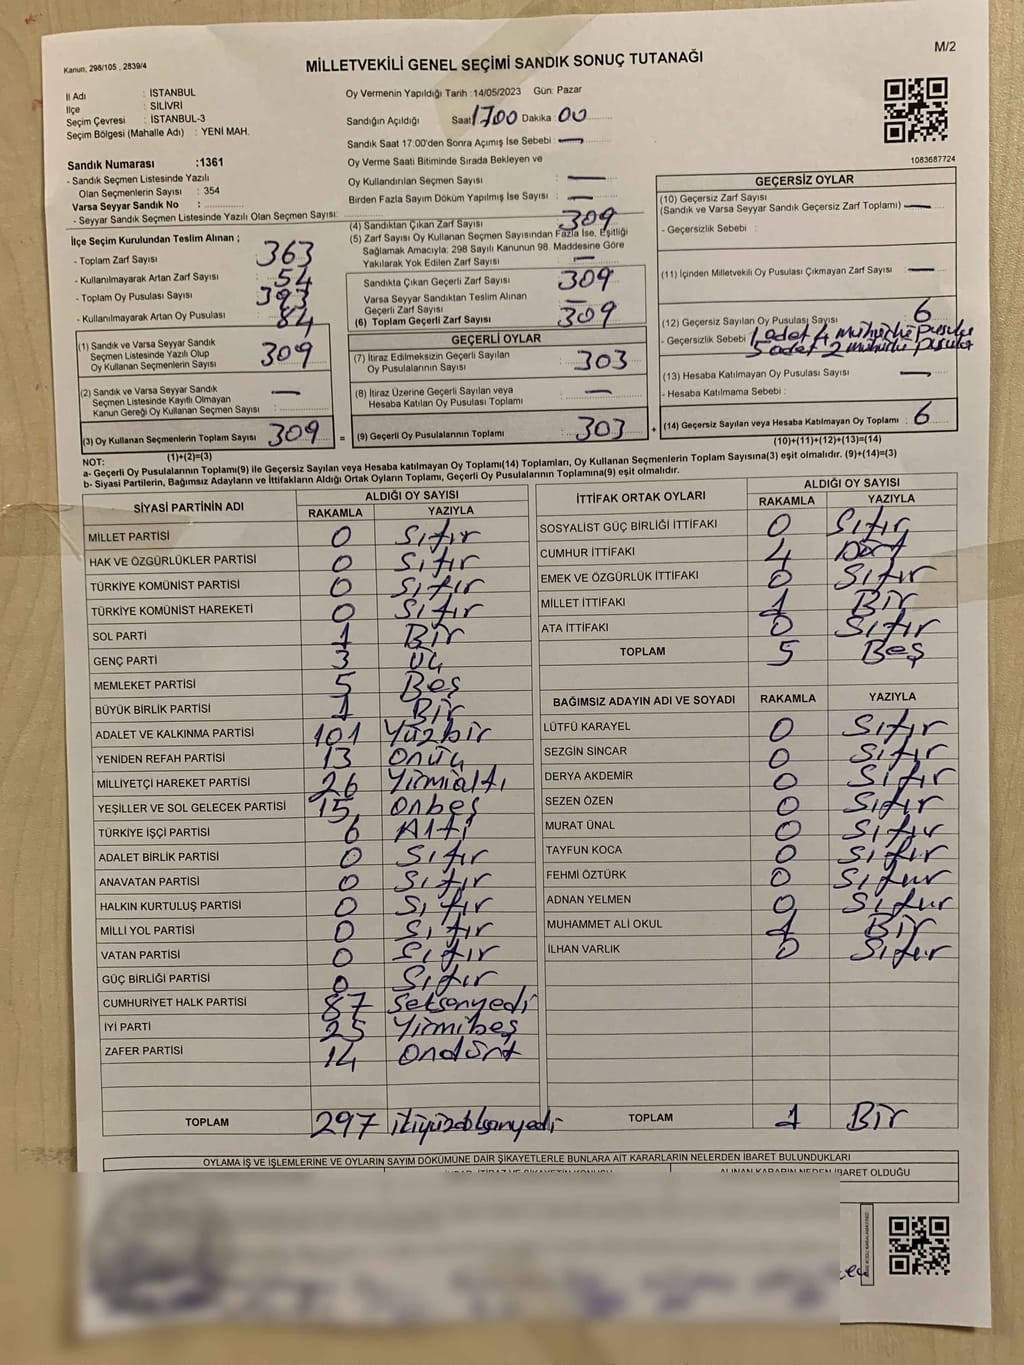 Kanun; 298/105 , 2839/4
MİLLETVEKİLİ GENEL SEÇİMİ SANDIK SONUÇ TUTANAĞI
M/2
İl Adı : İSTANBUL
İlçe : SİLİVRİ
Seçim Çevresi : İSTANBUL-3
Seçim Bölgesi (Mahalle Adı) : YENİ MAH.
Sandık Numarası :1361
- Sandık Seçmen Listesinde Yazılı
Olan Seçmenlerin Sayısı : 354
Varsa Seyyar Sandık No :
- Seyyar Sandık Seçmen Listesinde Yazılı Olan Seçmen Sayısı:
Oy Vermenin Yapıldığı Tarih :14/05/2023 Gün: Pazar
Sandığın Açıldığı Saat 1700 Dakika 00
Sandık Saat 17:00'den Sonra Açımış İse Sebebi : —
Oy Verme Saati Bitiminde Sırada Bekleyen ve
Oy Kullandırılan Seçmen Sayısı —
Birden Fazla Sayım Döküm Yapılmış İse Sayısı : —
1083687724
İlçe Seçim Kurulundan Teslim Alınan ;
- Toplam Zarf Sayısı : 363
- Kullanılmayarak Artan Zarf Sayısı : 54
- Toplam Oy Pusulası Sayısı : 393
- Kullanılmayarak Artan Oy Pusulası : 84
(1) Sandık ve Varsa Seyyar Sandık
Seçmen Listesinde Yazılı Olup
Oy Kullanan Seçmenlerin Sayısı : 309
(2) Sandık ve Varsa Seyyar Sandık
Seçmen Listesinde Kayıtlı Olmayan
Kanun Gereği Oy Kullanan Seçmen Sayısı : —
(3) Oy Kullanan Seçmenlerin Toplam Sayısı : 309 =
(1)+(2)=(3)
(4) Sandıktan Çıkan Zarf Sayısı : 309
(5) Zarf Sayısı Oy Kullanan Seçmen Sayısından Fazla İse, Eşitliği
Sağlamak Amacıyla; 298 Sayılı Kanunun 98. Maddesine Göre
Yakılarak Yok Edilen Zarf Sayısı : —
Sandıkta Çıkan Geçerli Zarf Sayısı : 309
Varsa Seyyar Sandıktan Teslim Alınan
Geçerli Zarf Sayısı : —
(6) Toplam Geçerli Zarf Sayısı : 309
GEÇERLİ OYLAR
(7) İtiraz Edilmeksizin Geçerli Sayılan
Oy Pusulalarının Sayısı : 303
(8) İtiraz Üzerine Geçerli Sayılan veya
Hesaba Katılan Oy Pusulası Toplamı : —
(9) Geçerli Oy Pusulalarının Toplamı : 303 +
GEÇERSİZ OYLAR
(10) Geçersiz Zarf Sayısı
(Sandık ve Varsa Seyyar Sandık Geçersiz Zarf Toplamı) : —
- Geçersizlik Sebebi :
(11) İçinden Milletvekili Oy Pusulası Çıkmayan Zarf Sayısı : —
(12) Geçersiz Sayılan Oy Pusulası Sayısı : 6
- Geçersizlik Sebebi 1 adet 4 mühürlü pusula
5 adet 2 mühürlü pusula
(13) Hesaba Katılmayan Oy Pusulası Sayısı : —
- Hesaba Katılmama Sebebi :
(14) Geçersiz Sayılan veya Hesaba Katılmayan Oy Toplamı : 6
(10)+(11)+(12)+(13)=(14)
NOT:
a- Geçerli Oy Pusulalarının Toplamı(9) ile Geçersiz Sayılan veya Hesaba katılmayan Oy Toplamı(14) Toplamları, Oy Kullanan Seçmenlerin Toplam Sayısına(3) eşit olmalıdır. (9)+(14)=(3)
b- Siyasi Partilerin, Bağımsız Adayların ve İttifakların Aldığı Ortak Oyların Toplamı, Geçerli Oy Pusulalarının Toplamına(9) eşit olmalıdır.
SİYASİ PARTİNİN ADI ALDIĞI OY SAYISI
RAKAMLA YAZIYLA
MİLLET PARTİSİ 0 Sıfır
HAK VE ÖZGÜRLÜKLER PARTİSİ 0 Sıfır
TÜRKİYE KOMÜNİST PARTİSİ 0 Sıfır
TÜRKİYE KOMÜNİST HAREKETİ 0 Sıfır
SOL PARTİ 1 Bir
GENÇ PARTİ 3 Üç
MEMLEKET PARTİSİ 5 Beş
BÜYÜK BİRLİK PARTİSİ 1 Bir
ADALET VE KALKINMA PARTİSİ 101 Yüzbir
YENİDEN REFAH PARTİSİ 13 Onüç
MİLLİYETÇİ HAREKET PARTİSİ 26 Yirmialtı
YEŞİLLER VE SOL GELECEK PARTİSİ 15 Onbeş
TÜRKİYE İŞÇİ PARTİSİ 6 Altı
ADALET BİRLİK PARTİSİ 0 Sıfır
ANAVATAN PARTİSİ 0 Sıfır
HALKIN KURTULUŞ PARTİSİ 0 Sıfır
MİLLİ YOL PARTİSİ 0 Sıfır
VATAN PARTİSİ 0 Sıfır
GÜÇ BİRLİĞİ PARTİSİ 0 Sıfır
CUMHURİYET HALK PARTİSİ 87 Seksenyedi
İYİ PARTİ 25 Yirmibeş
ZAFER PARTİSİ 14 Ondört
TOPLAM 297 ikiyüzdoksanyedi
İTTİFAK ORTAK OYLARI ALDIĞI OY SAYISI
RAKAMLA YAZIYLA
SOSYALİST GÜÇ BİRLİĞİ İTTİFAKI 0 Sıfır
CUMHUR İTTİFAKI 4 Dört
EMEK VE ÖZGÜRLÜK İTTİFAKI 0 Sıfır
MİLLET İTTİFAKI 1 Bir
ATA İTTİFAKI 0 Sıfır
TOPLAM 5 Beş
BAĞIMSIZ ADAYIN ADI VE SOYADI RAKAMLA YAZIYLA
LÜTFÜ KARAYEL 0 Sıfır
SEZGİN SİNCAR 0 Sıfır
DERYA AKDEMİR 0 Sıfır
SEZEN ÖZEN 0 Sıfır
MURAT ÜNAL 0 Sıfır
TAYFUN KOCA 0 Sıfır
FEHMİ ÖZTÜRK 0 Sıfır
ADNAN YELMEN 0 Sıfır
MUHAMMET ALİ OKUL 1 Bir
İLHAN VARLIK 0 Sıfır
TOPLAM 1 Bir
OYLAMA İŞ VE İŞLEMLERİNE VE OYLARIN SAYIM DÖKÜMÜNE DAİR ŞİKAYETLERLE BUNLARA AİT KARARLARIN NELERDEN İBARET BULUNDUKLARI
ALINAN KARARIN NEDEN İBARET OLDUĞU